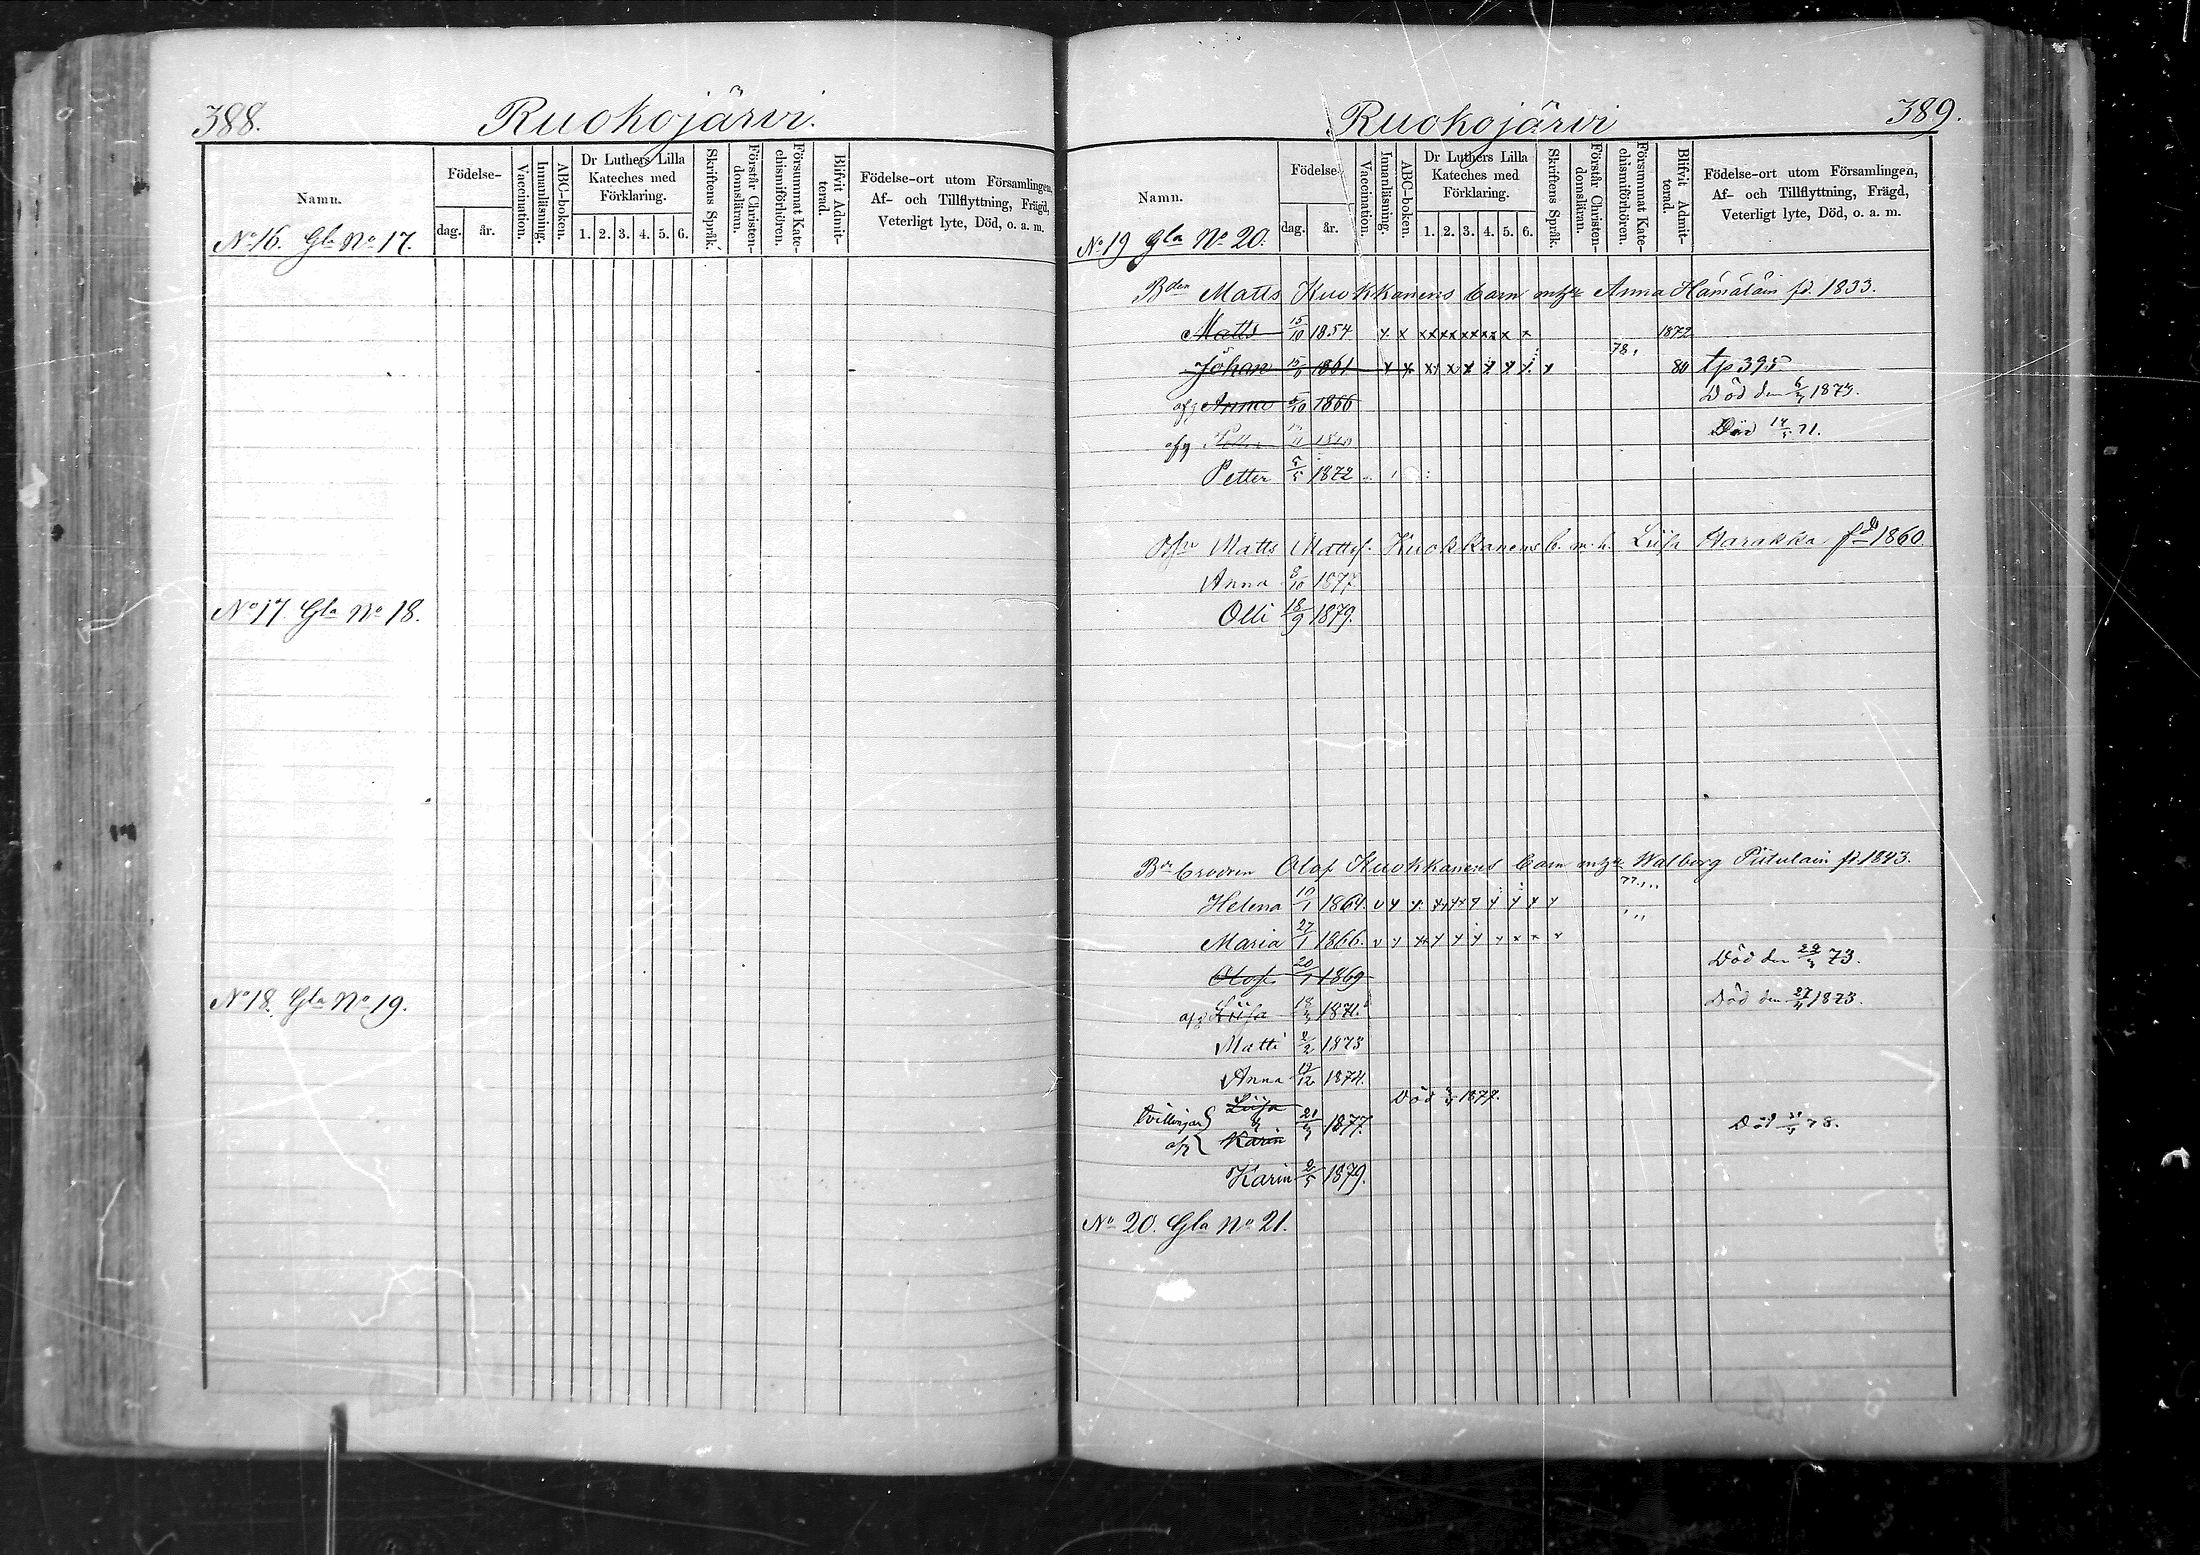 388.
Ruokojärvi.
Namn.
Födelse-
dag. år.
Vaccination.
Innanläsning.
ABC-boken.
Dr Luthers Lilla
Kateches med
Förklaring.
1. 2. 3. 4. 5. 6.
Skriftens Språk.
Förstår Christen-
domsläran.
Försummat Kate-
chismiförhören.
Blifvit Admit-
terad.
Födelse-ort utom Församlingen,
Af- och Tillflyttning, Frägd,
Veterligt lyte, Död, o. a. m.
No 16. Gla No 17.
No 17. Gla No 18.
No 18. Gla No 19.
389.
Ruokojärvi
Namn.
Födelse-
dag. år.
Vaccination.
Innanläsning.
ABC-boken.
Dr Luthers Lilla
Kateches med
Förklaring.
1. 2. 3. 4. 5. 6.
Skriftens Språk.
Förstår Christen-
domsläran.
Försummat Kate-
chismiförhören.
Blifvit Admit-
terad.
Födelse-ort utom Församlingen,
Af- och Tillflyttning, Frägd,
Veterligt lyte, Död, o. a. m.
No 19 Gla No 20.
Bden Matts Kuokkanens barn Anna Hämäläin fd. 1833.
Matts 15/10 1854 x x x x x x x x x x x 1872
Johan 1861 x x x x x x x x x 78, 80 tp 395
afg Anna 1866 Död den 1873.
afg Död 71.
Petter 5/5 1872
Matts Mattss. Kuokkanens b. m. h. Liisa Harakka fd 1860.
Anna 8/10 1877
Olli 18/9 1879.
Bdr brodren Olof Kuokkanens barn Walborg Piitulain fd. 1843.
Helena 1864. 77.
Maria 27/1 1866.
Olof 20/1 1869 Död den 73.
afg Liisa 1871. Död den 1873.
Matti 1873
Anna 1874.
tvillingar Liisa Död 1877.
& 1877.
afg Karin Död 78.
Karin 1879.
No 20. Gla No 21.